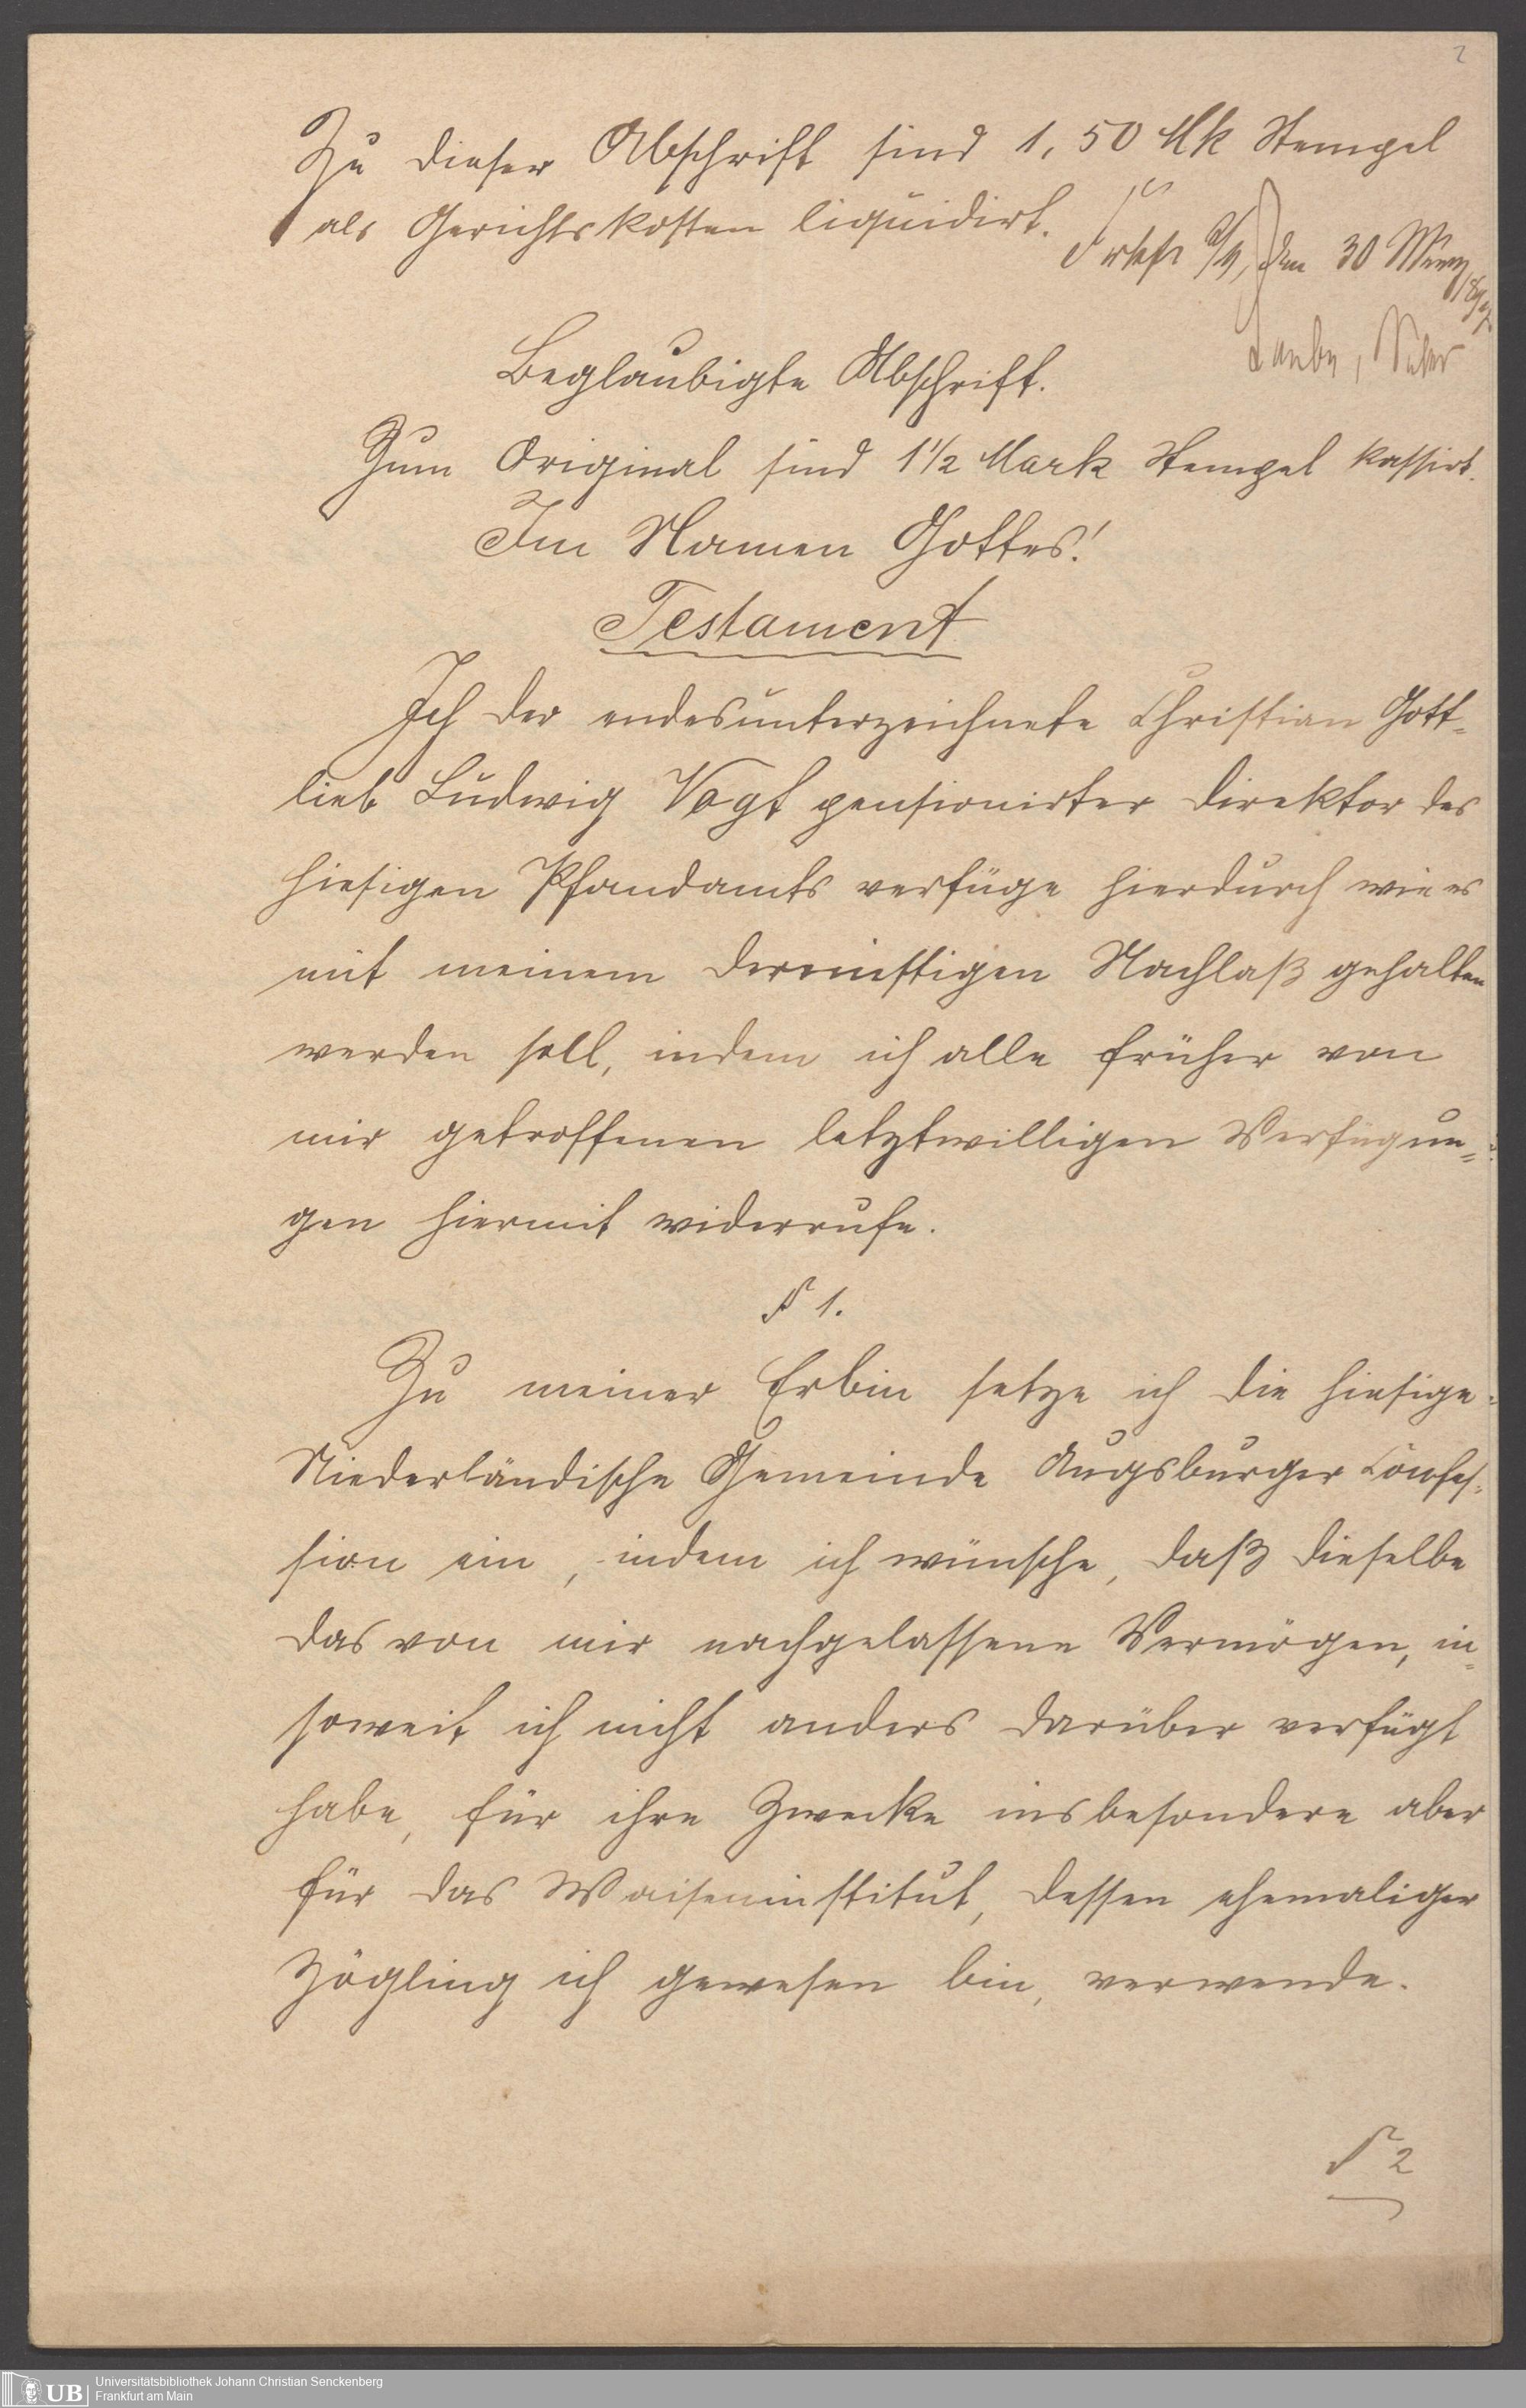 2
Zu dieser Abschrift sind 1,50 Mk Stempel
als Gerichtskosten liquidirt.
den 30 März
Beglaubigte Abschrift.
Zum Original sind 1 1/2 Mark Stempel kassirt.
Im Namen Gottes!
Testament
Ich der endesunterzeichnete Christian Gott=
lieb Ludwig Vogt pensionirter Direktor des
hiesigen Pfandamts verfüge hierdurch wie es
mit meinem dereinstigen Nachlaß gehalten
werden soll, indem ich alle früher von
mir getroffenen letztwilligen Verfügun=
gen hiermit widerrufe.
§ 1.
Zu meiner Erbin setze ich die hiesige
Niederländische Gemeinde Augsburger Confes=
sion ein, indem ich wünsche, daß dieselbe
das von mir nachgelassene Vermögen, in=
soweit ich nicht anders darüber verfügt
habe, für ihre Zwecke insbesondere aber
für das Waiseninstitut, dessen ehemaliger
Zögling ich gewesen bin, verwende.
§ 2
UB
Universitätsbibliothek Johann Christian Senckenberg
Frankfurt am Main